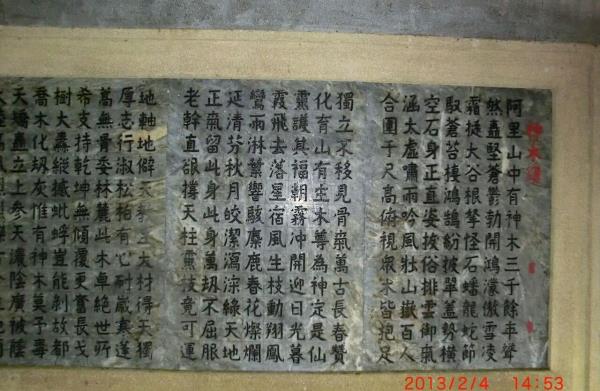 神木
阿里山中有神木三千餘年聳
然矗堅蒼鬱勃開鴻濛傲雪凌
霜挺大谷根拏怪石蟠龍蛇節
馭蒼苔棲鴻鵠紛披翠蓋勢橫
空石身正直姿拔俗排雲御氣
涵太虛嘯雨吟風壯山嶽百人
合圍于尺高俯視眾木皆抱足
獨立不移見骨氣萬古長春贊
化育山有木尊為神定是仙
靈護其福朝霧沖開迎日光暮
霞飛去落星宿風生枝動翔鳳
鸞雨淋響駭麋鹿春花燦爛
延清芬秋月皎潔瀉深綠天地
正氣留此身此身萬刼不屈服
老幹直欲撐天柱無技竟可運
地軸地僻天大材得天獨
厚志行淑松柏有心耐歲寒蓬
蒿無骨委林麓此木卓絕世所
希支持乾坤無傾覆更奮長戈
樹大纛縱撼蚍蜉豈能剝故都
喬木化刼灰惟有神木莫予毒
天矯矗立上參天濃陰廣被蔭
2013/2/4 14:53